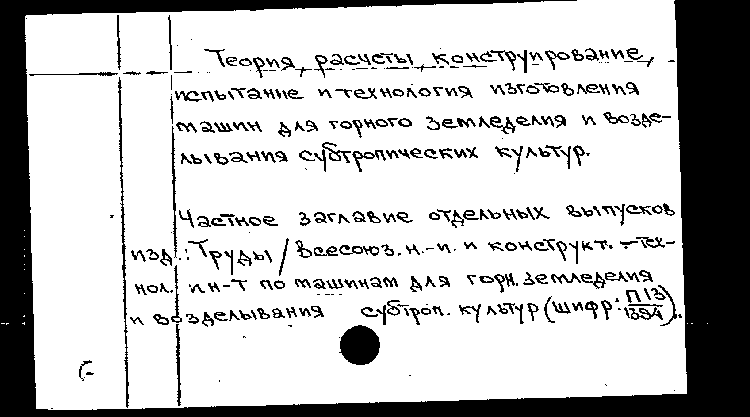 Теория, расчеты, конструирование,
испытание и технология изготовления
машин для горного земледелия и возде-
лывания субтропических культур.
Частное заглавие отдельных выпусков
изд.: Труды / Всесоюз. н.-и. и конструкт.-тех-
нол. ин-т по машинам для горн. земледелия
и возделывания субтроп. культур (шифр: П13/1394).